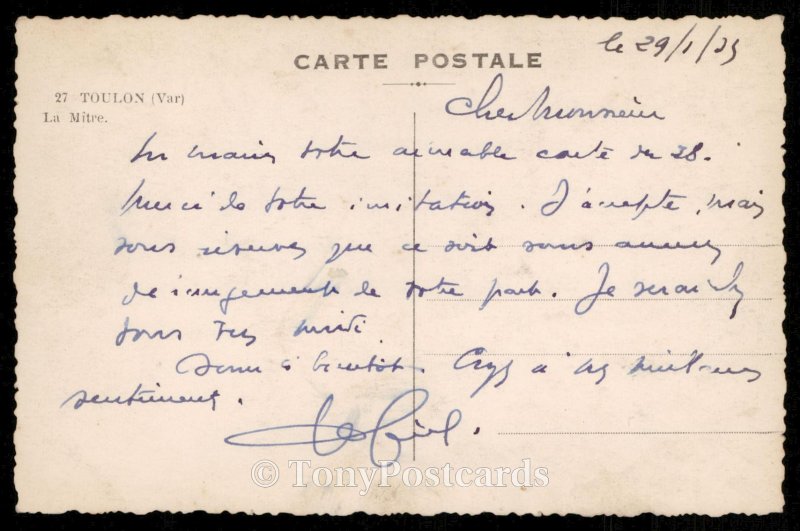 le 29/1/35
CARTE POSTALE
27 TOULON (Var)
La Mître.
Cher Monsieur
En mains votre aimable carte du 28.
Merci de votre invitation. J'accepte, mais
sous réserves que ce soit sans aucun
dérangement de votre part. Je serai
vers midi.
Donc à bientôt. Croyez à mes meilleurs
sentiments.
© TonyPostcards